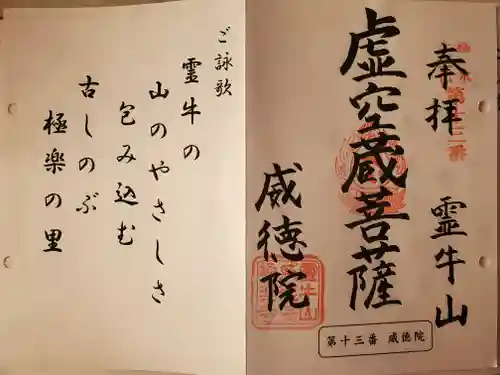 奉拝
第十三番
霊牛山
虚空蔵菩薩
威徳院
第十三番 威徳院
ご詠歌
霊牛の
山のやさしさ
包み込む
古しのぶ
極楽の里